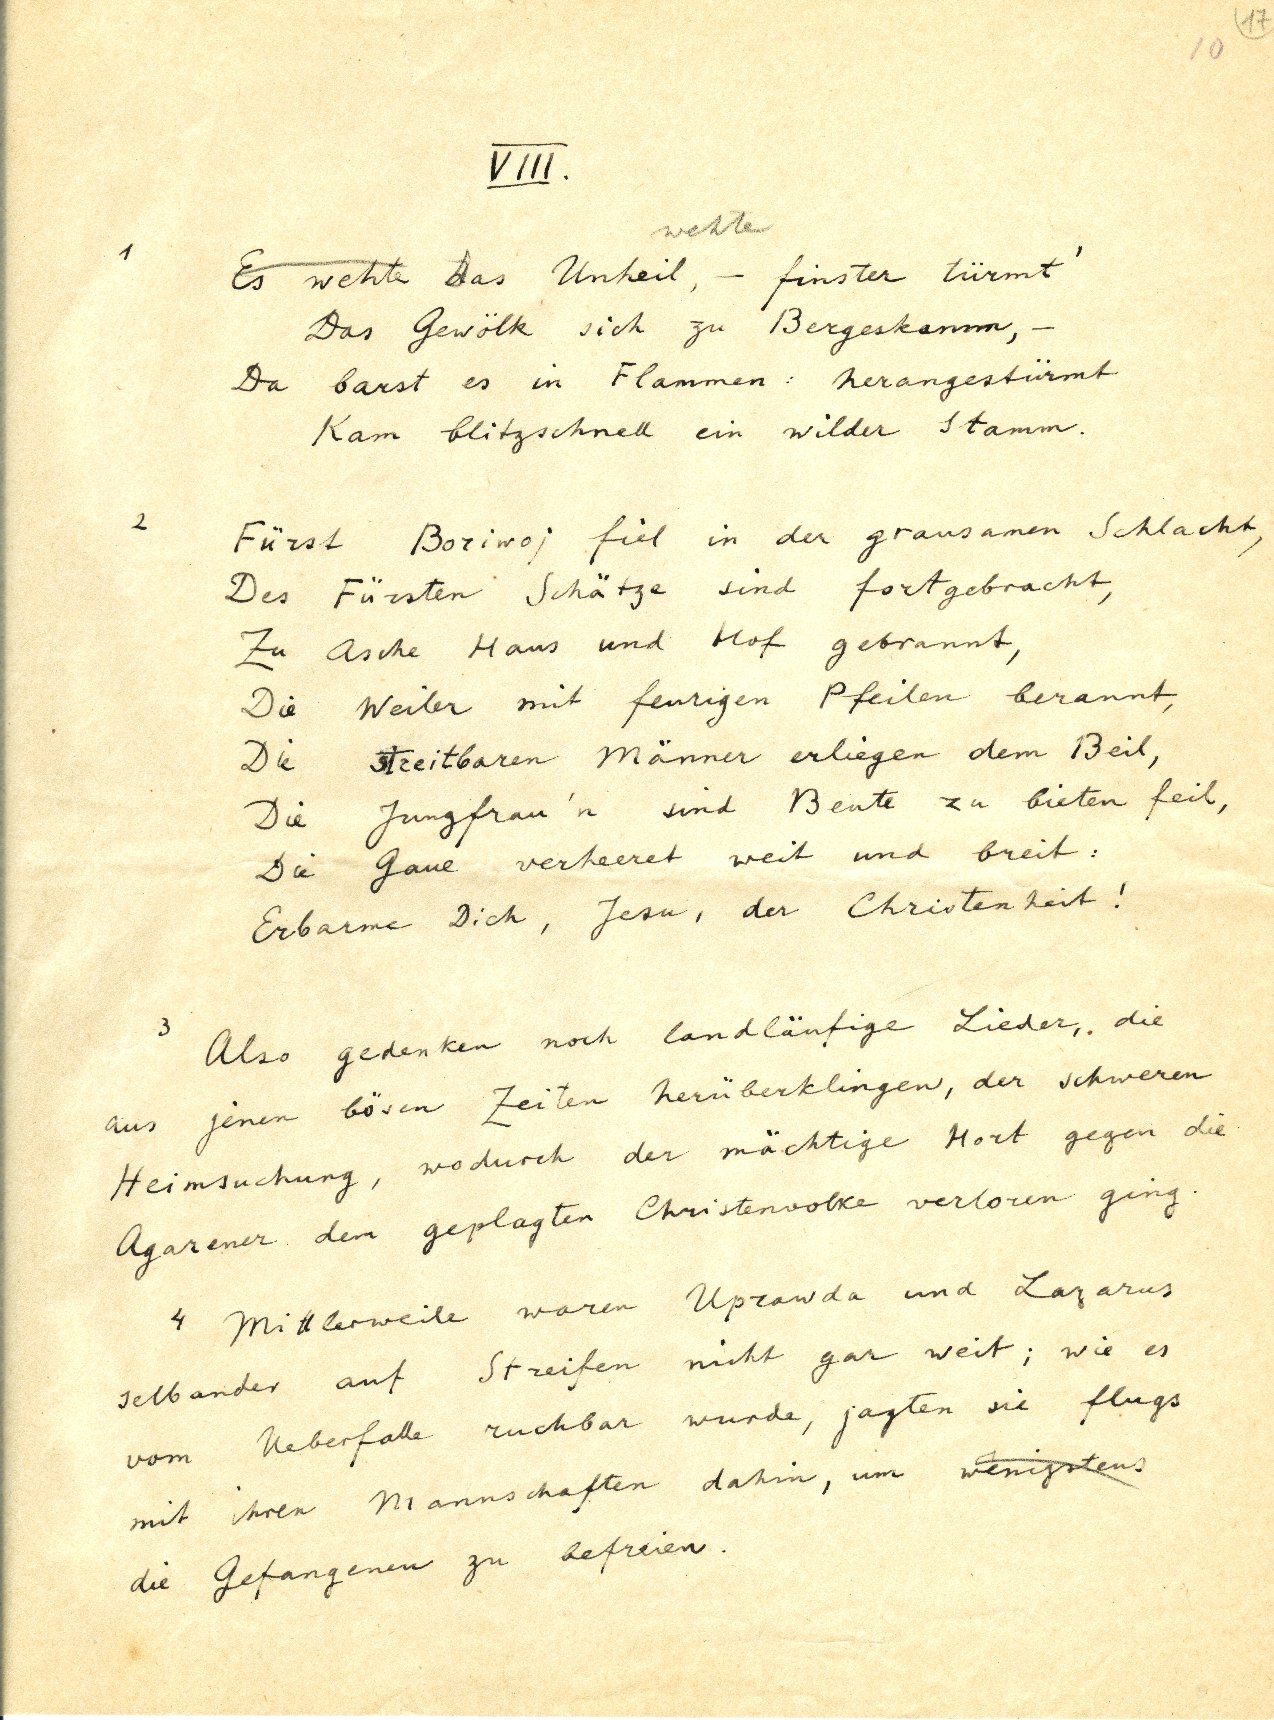 17
10
VIII.
wehte
1 Es wehte das Unheil, – finster türmt'
Das Gewölk sich zu Bergeskamm, –
Da barst es in Flammen: herangestürmt
Kam blitzschnell ein wilder Stamm.
2 Fürst Boriwoj fiel in der grausamen Schlacht,
Des Fürsten Schätze sind fortgebracht,
Zu Asche Haus und Hof gebrannt,
Die Weiler mit feurigen Pfeilen berannt,
Die streitbaren Männer erliegen dem Beil,
Die Jungfrau'n sind Beute zu bieten feil,
Die Gaue verheeret weit und breit:
Erbarme Dich, Jesu, der Christenheit!
3 Also gedenken noch landläufige Lieder, die
aus jenen bösen Zeiten herüberklingen, der schweren
Heimsuchung, wodurch der mächtige Hort gegen die
Agarener dem geplagten Christenvolke verloren ging.
4 Mittlerweile waren Uprawda und Lazarus
selbander auf Streifen nicht gar weit; wie es
vom Ueberfalle ruchbar wurde, jagten sie flugs
mit ihren Mannschaften dahin, um wenigstens
die Gefangenen zu befreien.